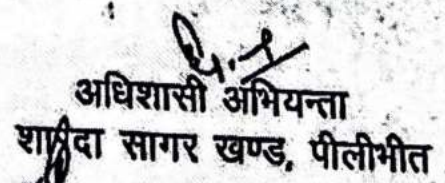 अधिशासी अभियन्ता
शारदा सागर खण्ड, पीलीभीत